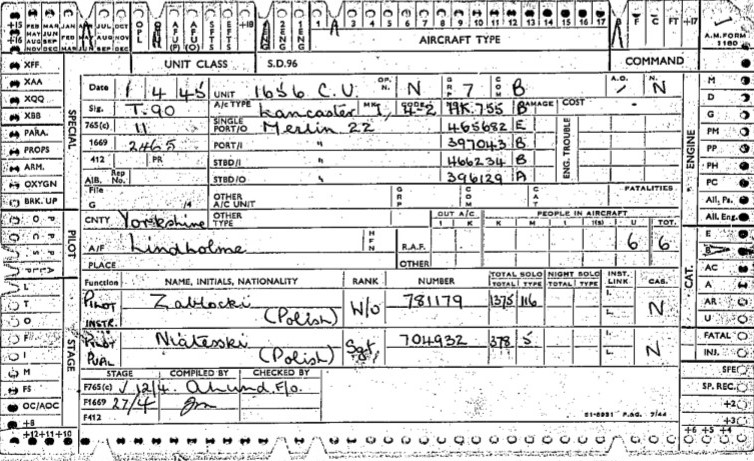 +15 FEB MAR JAN JUL OCT
+16 MAY JUN SEP
AUG SEP DEC
NOV DEC MAR
OPL
AFU (P)
AFU (O)
SFTS
EFTS
+18
2 ENG
4 ENG
1 2 3 4 5 6 7 8 9 10 11 12 13 14 15 16 17
F C FT +17
AIRCRAFT TYPE
A.M. FORM 1180
UNIT CLASS S.D.96 COMMAND
Date 1 4 45 UNIT 1656 C.U. OP. N. N GRP 7 COM B A.O. N. N
Sig. T.90 A/C TYPE Lancaster MK I, HK.755 B DAMAGE COST
765(c) 11 SINGLE PORT/O Merlin 22 465682 E
1669 2465 PORT/I " 397043 B
412 PR STBD/I " 466234 B
AIB. Rep No. STBD/O " 396129 A
ENG. TROUBLE
File G /4 OTHER A/C UNIT GRP COM CAT FATALITIES
CNTY Yorkshire OTHER TYPE OUT A/C PEOPLE IN AIRCRAFT
I K K M I I(s) U TOT.
A/F Lindholme HFN R.A.F. 6 6
PLACE OTHER
Function NAME, INITIALS, NATIONALITY RANK NUMBER TOTAL SOLO NIGHT SOLO INST. LINK CAS.
TOTAL TYPE TOTAL TYPE
Pilot Zablocki W/o 781179 1375 116 I. N
INSTR. (Polish) L.
Pilot Sgt 704932 378 5 I. N
PUPIL (Polish) L.
STAGE COMPILED BY CHECKED BY
F765(c) 12/4. F/o.
F1669 27/4
F412
51-8931 P.&G. 7/44
XFF
XAA
XQQ
XBB
PARA.
PROPS
ARM.
OXYGEN
BRK. UP
SPECIAL
PILOT
L
T
O
F
I
M
FS
OC/AOC
+8
+12 +11 +10
STAGE
M
D
G
PM
PP
PH
PC
All. Ps.
All. Eng.
ENGINE
E
B
AC
A
AR
U
CAT.
FATAL
INJ.
SFE
SP. REC.
+2
+3
+6 +5 +4